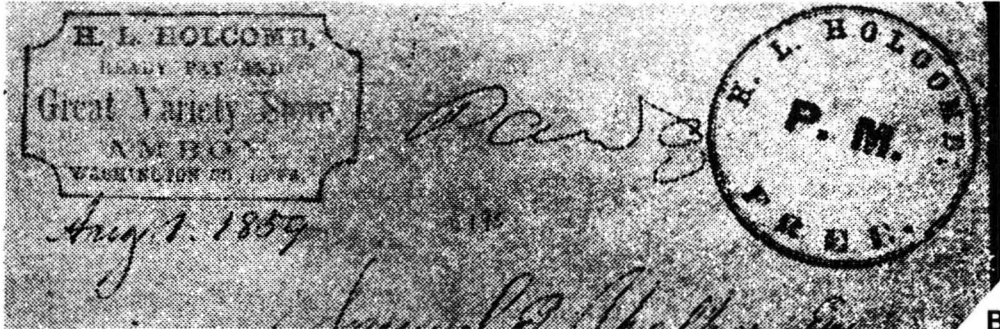 H. L. HOLCOMB,
READY PAY AND
Great Variety Store,
AMBOY,
WASHINGTON CO. IOWA.
Aug. 1. 1859
Paid 3
H. L. HOLCOMB.
P. M.
FREE.
Samuel
B